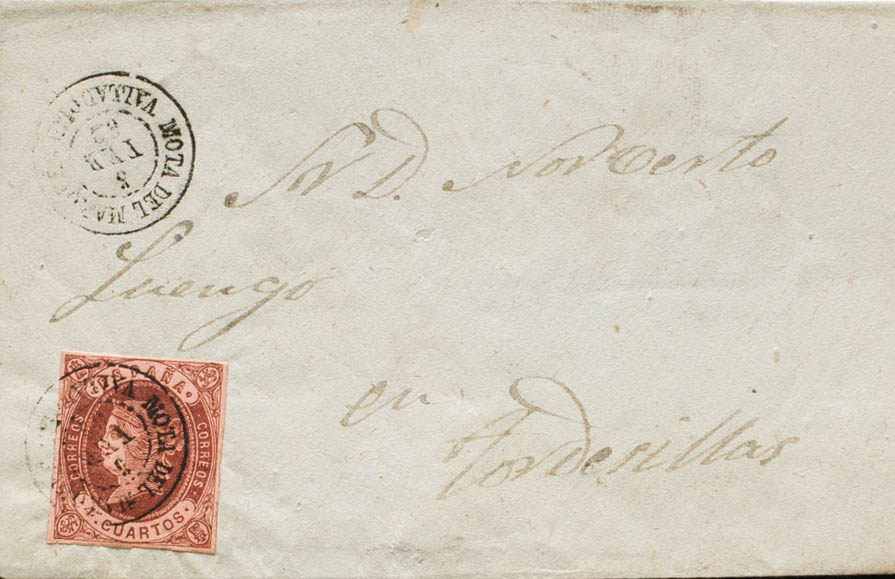 MOTA DEL MARQUES VALLADOLID
5
ENE
63
Sr D. Norberto
Luengo
en
Tordesillas
ESPAÑA
CORREOS
CORREOS
4 CUARTOS
MOTA DEL